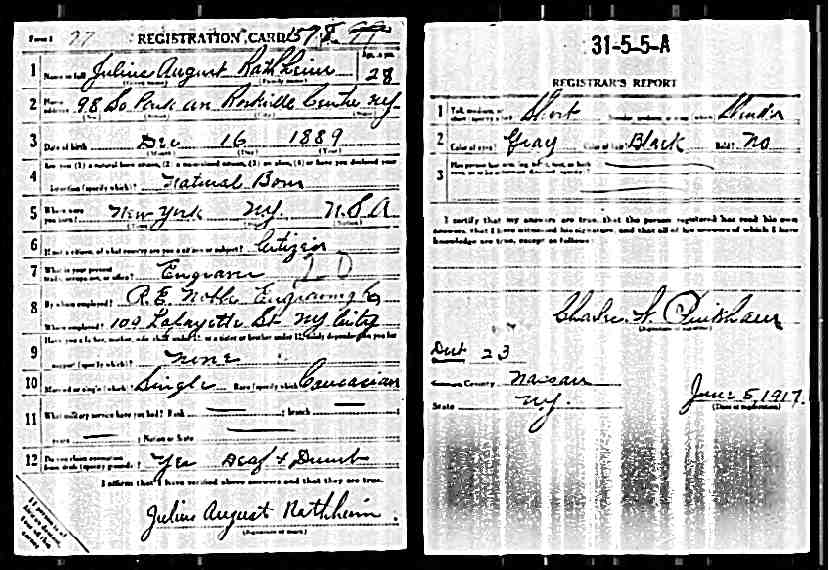 Form 1 77 REGISTRATION CARD 1578
Age, in yrs.
1 Name in full Julius August Rathheim 28
(Given name) (Family name)
2 Home address 98 So Park av Rockville Centre NY
3 Date of birth Dec 16 1889
(Month) (Day) (Year)
Are you (1) a natural born citizen, (2) a naturalized citizen, (3) an alien, (4) or have you declared your
4 intention (specify which)? Natural Born
5 Where were you born? New York NY U.S.A
(Town) (State) (Nation)
6 If not a citizen, of what country are you a citizen or subject? Citizen
7 What is your present trade, occupation, or office? Engraver
8 By whom employed? R.E. Engraving Co
Where employed? 109 Lafayette St NY City
Have you a father, mother, wife, child under 12, or a sister or brother under 12, solely dependent on you for
9 support (specify which)? None
10 Married or single (which)? Single Race (specify which)? Caucasian
11 What military service have you had? Rank ; branch ;
years ; Nation or State
12 Do you claim exemption from draft (specify grounds)? Yes Deaf & Dumb
I affirm that I have verified above answers and that they are true.
Julius August Rathheim
(Signature or mark)
31-5-5-A
REGISTRAR'S REPORT
1 Tall, medium, or short (specify which)? Short Slender, medium, or stout (which)? Slender
2 Color of eyes? Gray Color of hair? Black Bald? No
3 Has person lost arm, leg, hand, foot, or both
I certify that my answers are true, that the person registered has read his own
answers, that I have witnessed his signature, and that all of his answers of which I have
knowledge are true, except as follows:
Charles
(Signature of registrar)
23
County Nassau
State N.Y. June 5, 1917
(Date of registration)